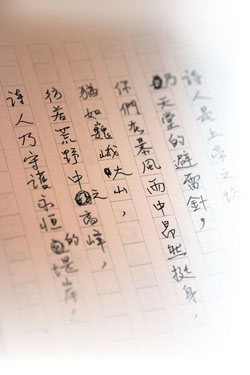 詩人是上帝之
乃天堂的避雷針，
你們在暴風雨中昂然挺身，
猶如巍峨大山，
彷若荒野中之高峰，
詩人乃守護永恒的堤岸！